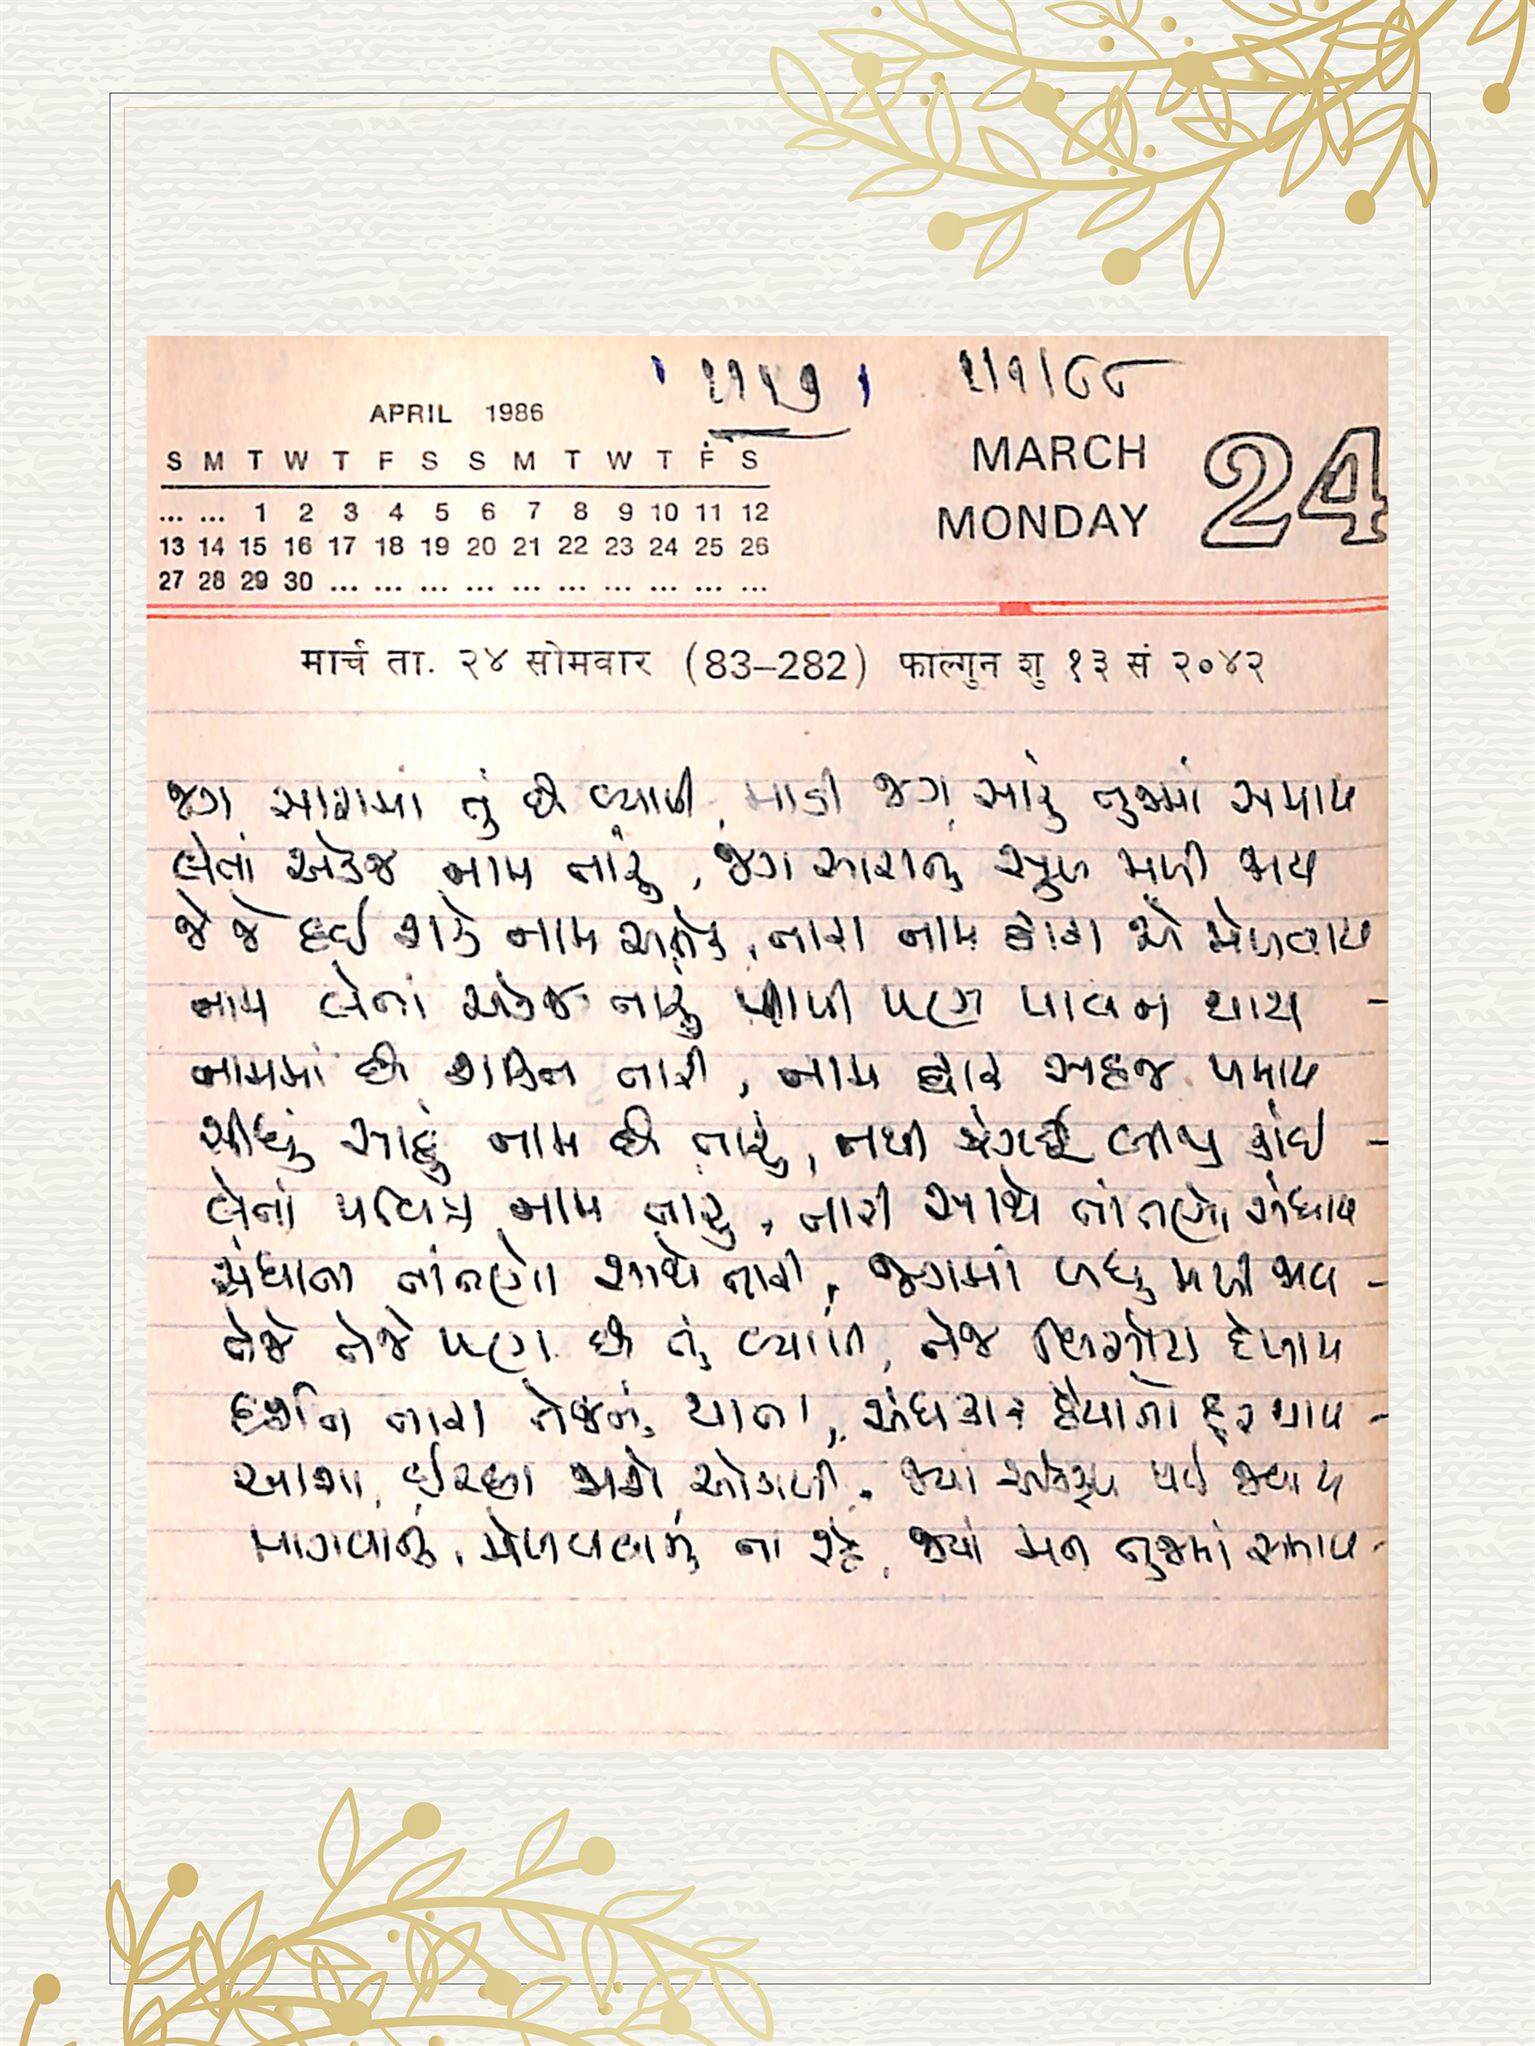 ૧૧૫૭ ૨/૧/૮૮
APRIL 1986
MARCH 24
MONDAY
S M T W T F S S M T W T F S
... ... 1 2 3 4 5 6 7 8 9 10 11 12
13 14 15 16 17 18 19 20 21 22 23 24 25 26
27 28 29 30 ... ... ... ... ... ... ... ... ... ...
मार्च ता. २४ सोमवार (83–282) फाल्गुन शु १३ सं २०४२
જગ સારામાં તું છે વ્યાપી, માડી જગ સારું તુજમાં સમાય
લેતાં એકજ નામ તારું, જગ સારાનું સુખ મળી જાય
જે જે દઈ શકે નામ અનેક, તારા નામ દ્વારા એ મેળવાય
નામ લેતાં એકજ તારું પાપી પણ પાવન થાય -
નામમાં છે શક્તિ તારી, નામ દ્વારે સહજ પમાય
સીધું સાદું નામ છે તારું, નથી બીજું કાંઈ -
લેતાં પવિત્ર નામ તારું, તારી સાથે તાંતણે બંધાય
બંધાતા તાંતણે સાથે તારી, જગમાં બધુ મળી જાય -
તેજે તેજે પણ છે તું વ્યાપી, તેજ દેખાય
દર્શન તારા તેજનું થાતા, અંધકાર હૈયાનો દૂર થાય -
આશા, ઈચ્છા જાશે ઓગળી, જ્યાં એકરૂપ થઈ જવાય
માગવાનું, મેળવવાનું ના રહે, જ્યાં મન તુજમાં સમાય -